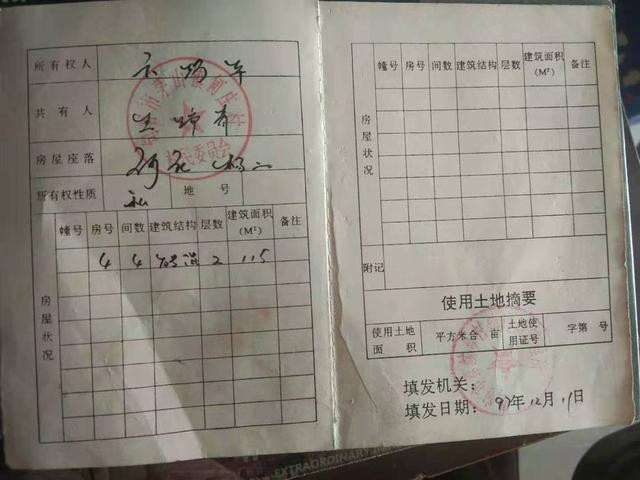 所有权人
共有人
房屋座落
所有权性质 私 地号
房屋状况
幢号 房号 间数 建筑结构 层数 建筑面积(M²) 备注
4 4 砖混 2 115
幢号 房号 间数 建筑结构 层数 建筑面积(M²) 备注
房屋状况
附记
使用土地摘要
使用土地面积 平方米合 亩 土地使用证号 字第 号
填发机关:
填发日期: 97年12月11日
EXTRAORDINARY